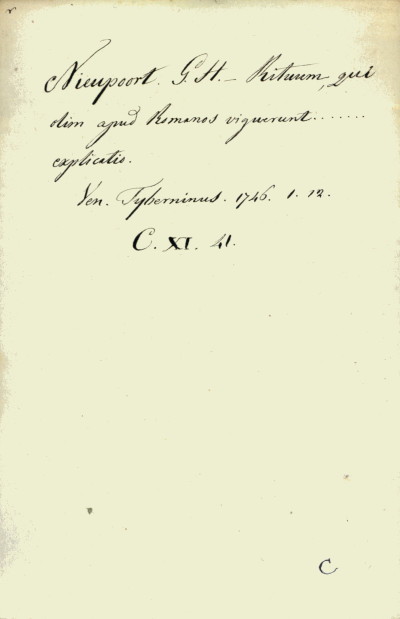 Nieupoort. G. H. - Rituum, qui
olim apud Romanos viguerunt.......
explicatio.
Ven. Tyberninus. 1746. 1. 12.
C. XI. 41.
C